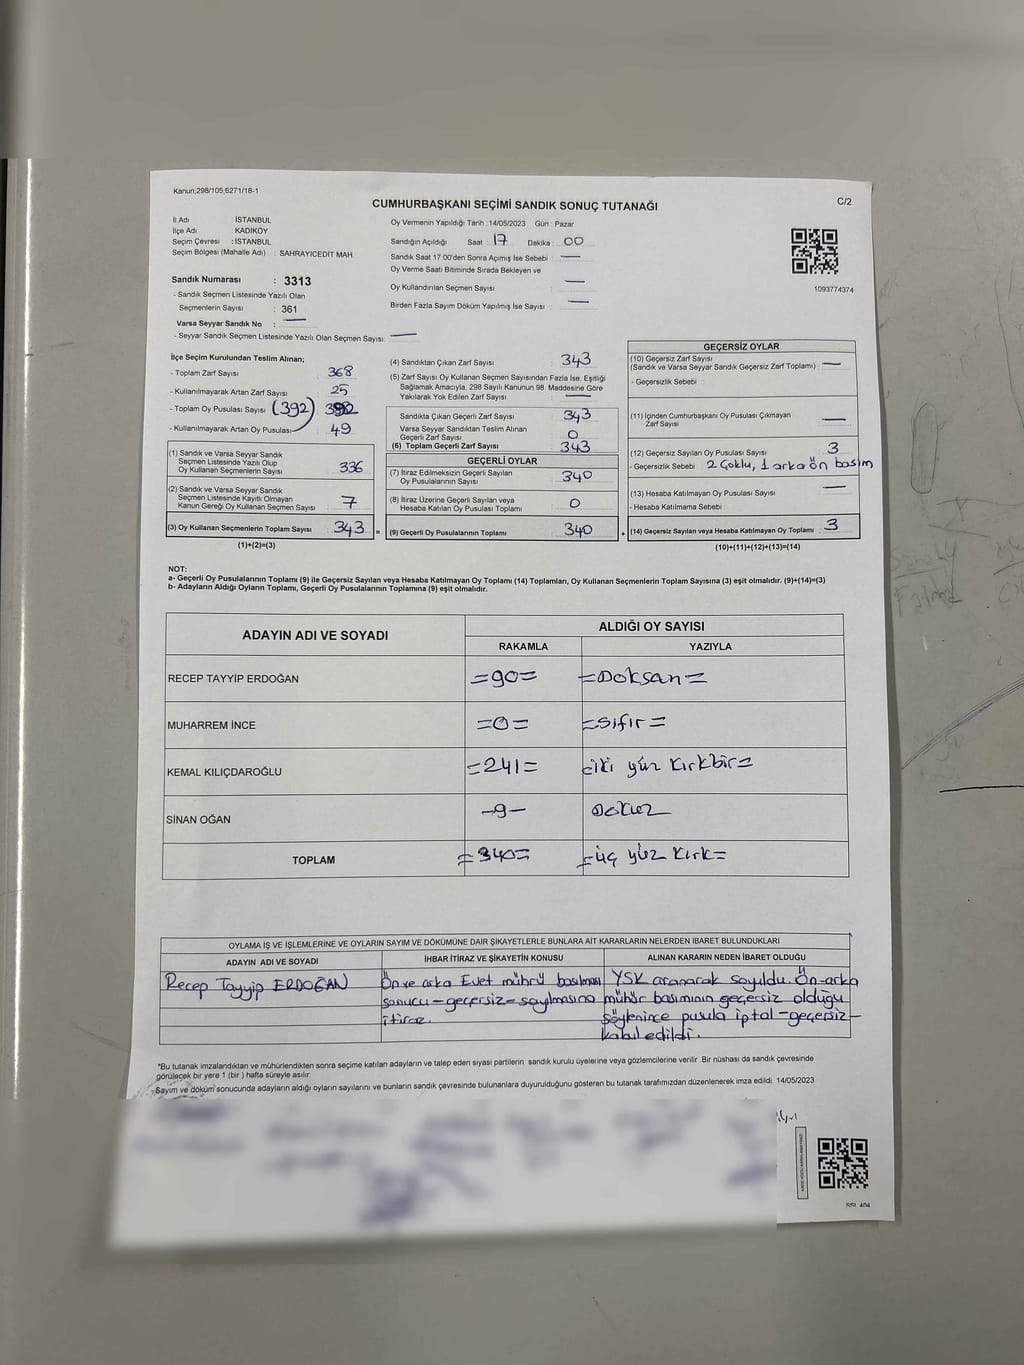 Kanun,298/105,6271/18-1
CUMHURBAŞKANI SEÇİMİ SANDIK SONUÇ TUTANAĞI
C/2
İl Adı : İSTANBUL
İlçe Adı : KADIKÖY
Seçim Çevresi : İSTANBUL
Seçim Bölgesi (Mahalle Adı) : SAHRAYICEDİT MAH.
Sandık Numarası : 3313
- Sandık Seçmen Listesinde Yazılı Olan
Seçmenlerin Sayısı : 361
Varsa Seyyar Sandık No : —
- Seyyar Sandık Seçmen Listesinde Yazılı Olan Seçmen Sayısı: —
Oy Vermenin Yapıldığı Tarih : 14/05/2023 Gün : Pazar
Sandığın Açıldığı Saat : 17 Dakika : 00
Sandık Saat 17:00'den Sonra Açımış İse Sebebi : —
Oy Verme Saati Bitiminde Sırada Bekleyen ve
Oy Kullandırılan Seçmen Sayısı : —
Birden Fazla Sayım Döküm Yapılmış İse Sayısı : —
1093774374
İlçe Seçim Kurulundan Teslim Alınan;
- Toplam Zarf Sayısı 368
- Kullanılmayarak Artan Zarf Sayısı 25
- Toplam Oy Pusulası Sayısı (392) 392
- Kullanılmayarak Artan Oy Pusulası 49
(1) Sandık ve Varsa Seyyar Sandık
Seçmen Listesinde Yazılı Olup
Oy Kullanan Seçmenlerin Sayısı 336
(2) Sandık ve Varsa Seyyar Sandık
Seçmen Listesinde Kayıtlı Olmayan
Kanun Gereği Oy Kullanan Seçmen Sayısı 7
(3) Oy Kullanan Seçmenlerin Toplam Sayısı 343 =
(1)+(2)=(3)
(4) Sandıktan Çıkan Zarf Sayısı 343
(5) Zarf Sayısı Oy Kullanan Seçmen Sayısından Fazla İse, Eşitliği
Sağlamak Amacıyla; 298 Sayılı Kanunun 98. Maddesine Göre
Yakılarak Yok Edilen Zarf Sayısı —
Sandıkta Çıkan Geçerli Zarf Sayısı 343
Varsa Seyyar Sandıktan Teslim Alınan
Geçerli Zarf Sayısı 0
(6) Toplam Geçerli Zarf Sayısı 343
GEÇERLİ OYLAR
(7) İtiraz Edilmeksizin Geçerli Sayılan
Oy Pusulalarının Sayısı 340
(8) İtiraz Üzerine Geçerli Sayılan veya
Hesaba Katılan Oy Pusulası Toplamı 0
(9) Geçerli Oy Pusulalarının Toplamı 340 +
GEÇERSİZ OYLAR
(10) Geçersiz Zarf Sayısı
(Sandık ve Varsa Seyyar Sandık Geçersiz Zarf Toplamı) —
- Geçersizlik Sebebi :
(11) İçinden Cumhurbaşkanı Oy Pusulası Çıkmayan
Zarf Sayısı —
(12) Geçersiz Sayılan Oy Pusulası Sayısı 3
- Geçersizlik Sebebi 2 Çoklu, 1 arka ön basım
(13) Hesaba Katılmayan Oy Pusulası Sayısı —
- Hesaba Katılmama Sebebi
(14) Geçersiz Sayılan veya Hesaba Katılmayan Oy Toplamı 3
(10)+(11)+(12)+(13)=(14)
NOT:
a- Geçerli Oy Pusulalarının Toplamı (9) ile Geçersiz Sayılan veya Hesaba Katılmayan Oy Toplamı (14) Toplamları, Oy Kullanan Seçmenlerin Toplam Sayısına (3) eşit olmalıdır. (9)+(14)=(3)
b- Adayların Aldığı Oyların Toplamı, Geçerli Oy Pusulalarının Toplamına (9) eşit olmalıdır.
ADAYIN ADI VE SOYADI ALDIĞI OY SAYISI
RAKAMLA YAZIYLA
RECEP TAYYİP ERDOĞAN =90= =Doksan=
MUHARREM İNCE =0= =Sıfır=
KEMAL KILIÇDAROĞLU =241= =iki yüz kırkbir=
SİNAN OĞAN -9- Dokuz
TOPLAM =340= =üç yüz kırk=
OYLAMA İŞ VE İŞLEMLERİNE VE OYLARIN SAYIM VE DÖKÜMÜNE DAİR ŞİKAYETLERLE BUNLARA AİT KARARLARIN NELERDEN İBARET BULUNDUKLARI
ADAYIN ADI VE SOYADI İHBAR İTİRAZ VE ŞİKAYETİN KONUSU ALINAN KARARIN NEDEN İBARET OLDUĞU
Recep Tayyip ERDOĞAN Ön ve arka Evet mührü basılması YSK aranarak soyuldu. Ön-arka
sonucu -geçersiz= sayılmasına mühür basımının geçersiz olduğu
itiraz. söylenince pusula iptal -geçersiz-
kabul edildi.
*Bu tutanak imzalandıktan ve mühürlendikten sonra seçime katılan adayların ve talep eden siyasi partilerin sandık kurulu üyelerine veya gözlemcilerine verilir. Bir nüshası da sandık çevresinde
görülecek bir yere 1 (bir ) hafta süreyle asılır.
Sayım ve döküm sonucunda adayların aldığı oyların sayılarını ve bunların sandık çevresinde bulunanlara duyurulduğunu gösteren bu tutanak tarafımızdan düzenlenerek imza edildi. 14/05/2023